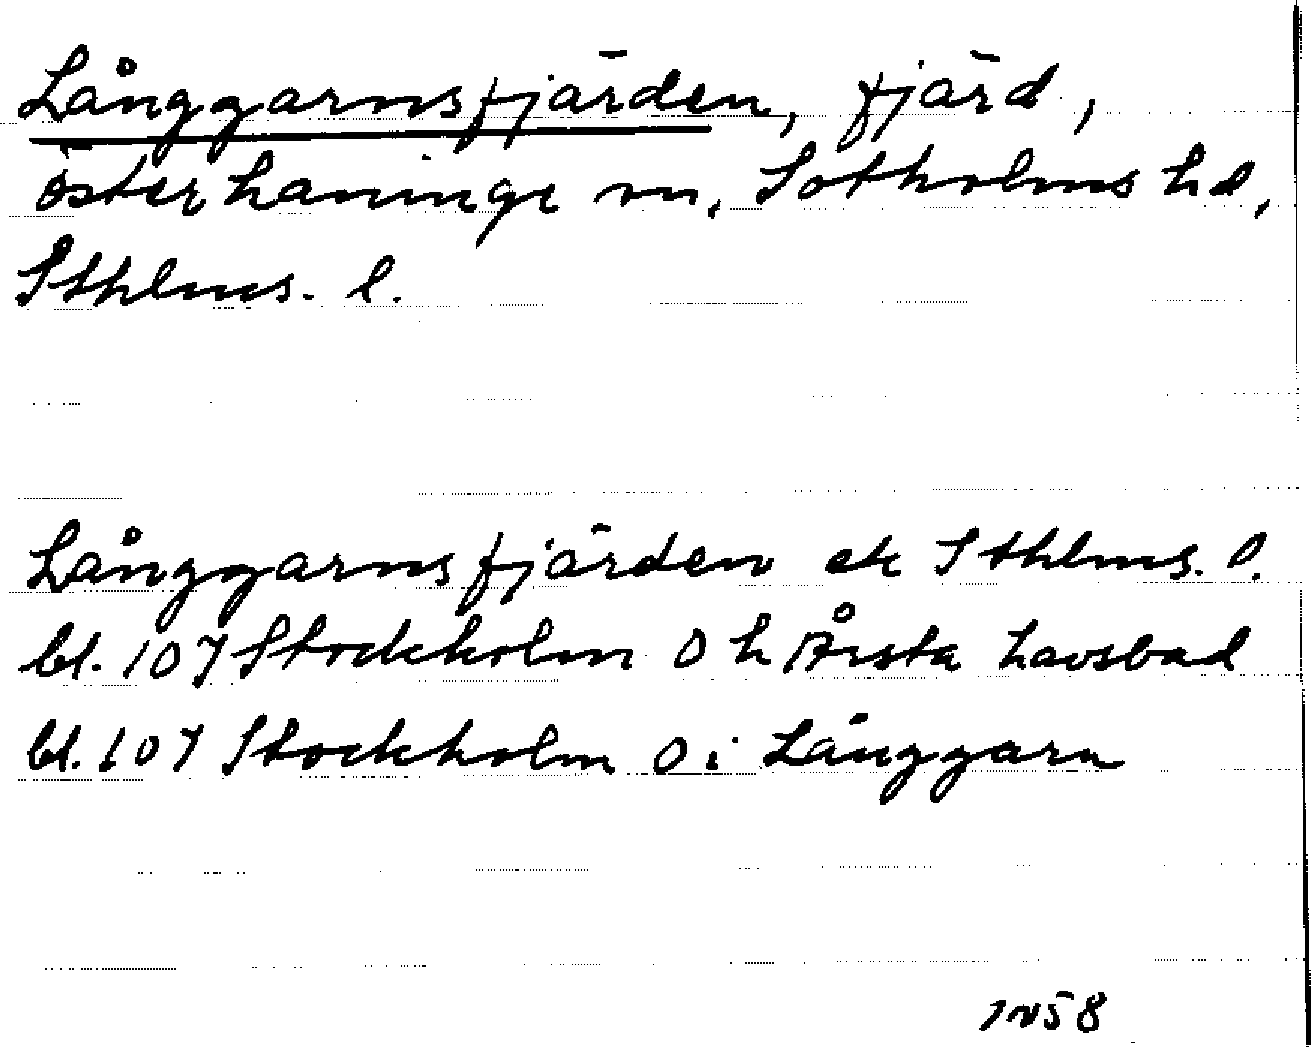 Långgarnsfjärden, fjärd,
Österhaninge sn, Sotholms hd,
Sthlms. l.
Långgarnsfjärden ek Sthlms. l.
bl. 107 Stockholm O h Årsta havsbad
bl. 107 Stockholm O i Långgarn